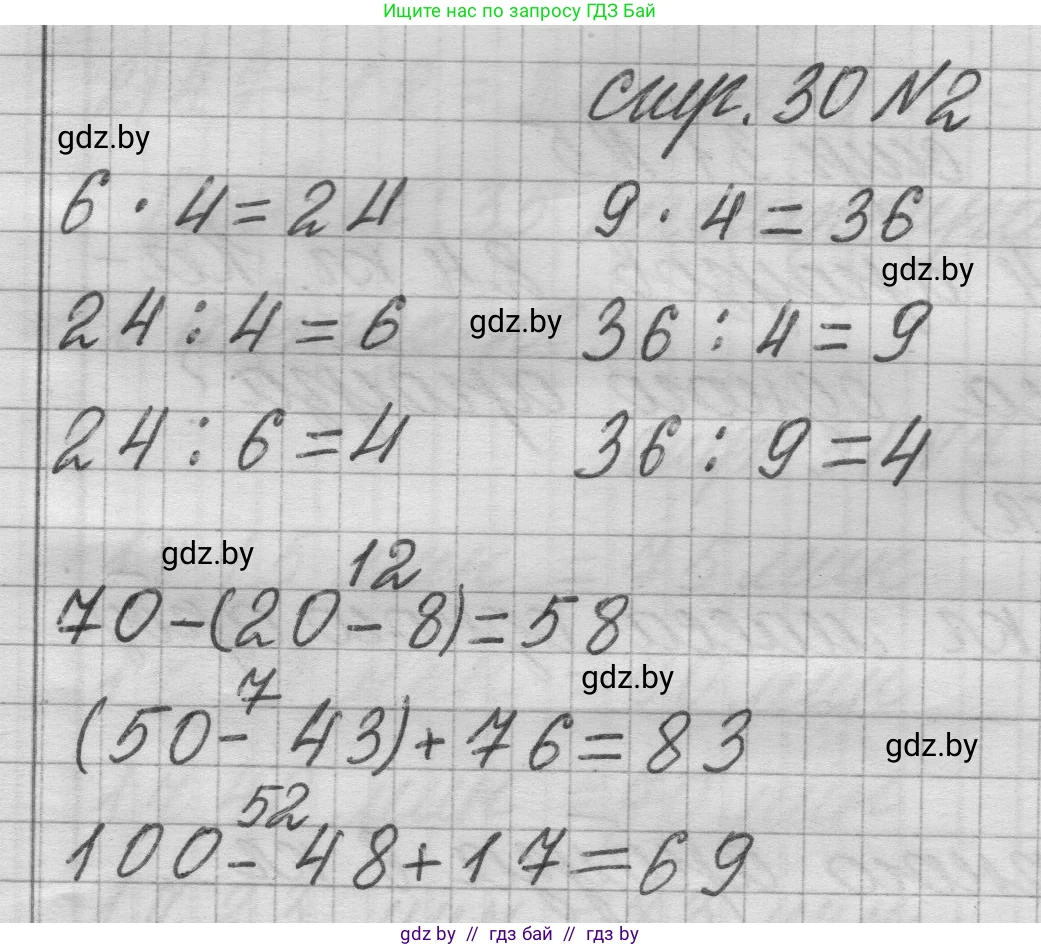 Ищите нас по запросу ГДЗ Бай
стр. 30 №2
gdz.by
6 · 4 = 24 9 · 4 = 36
gdz.by
24 : 4 = 6 gdz.by 36 : 4 = 9
24 : 6 = 4 36 : 9 = 4
gdz.by 12
70 - (20 - 8) = 58
gdz.by
7
(50 - 43) + 76 = 83
gdz.by
52
100 - 48 + 17 = 69
gdz.by // гдз бай // гдз by